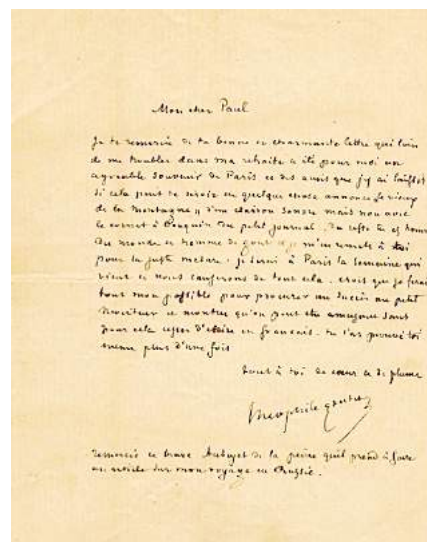 Mon cher Paul
Je te remercie de ta bonne et charmante lettre qui loin
de me troubler dans ma retraite a été pour moi un
agréable souvenir de Paris et des amis que j'y ai laissés
si cela peut te servir en quelque chose annonce le vieux
de la montagne „ d'un clairon sonore mais non avec
le cornet à bouquin du petit journal. Du reste tu es homme
du monde et homme de gout et m'en remets à toi
pour la juste mesure. je serai à Paris la semaine qui
vient et nous causerons de tout cela. crois que je ferai
tout mon possible pour procurer un succès au petit
moniteur et montrer qu'on peut etre amusant sans
pour cela cesser d'ecrire en français. tu l'as prouvé toi
meme plus d'une fois
tout à toi de coeur et de plume
Theophile Gautier
remercie ce brave de la peine qu'il prend à faire
un article sur mon voyage en Russie.